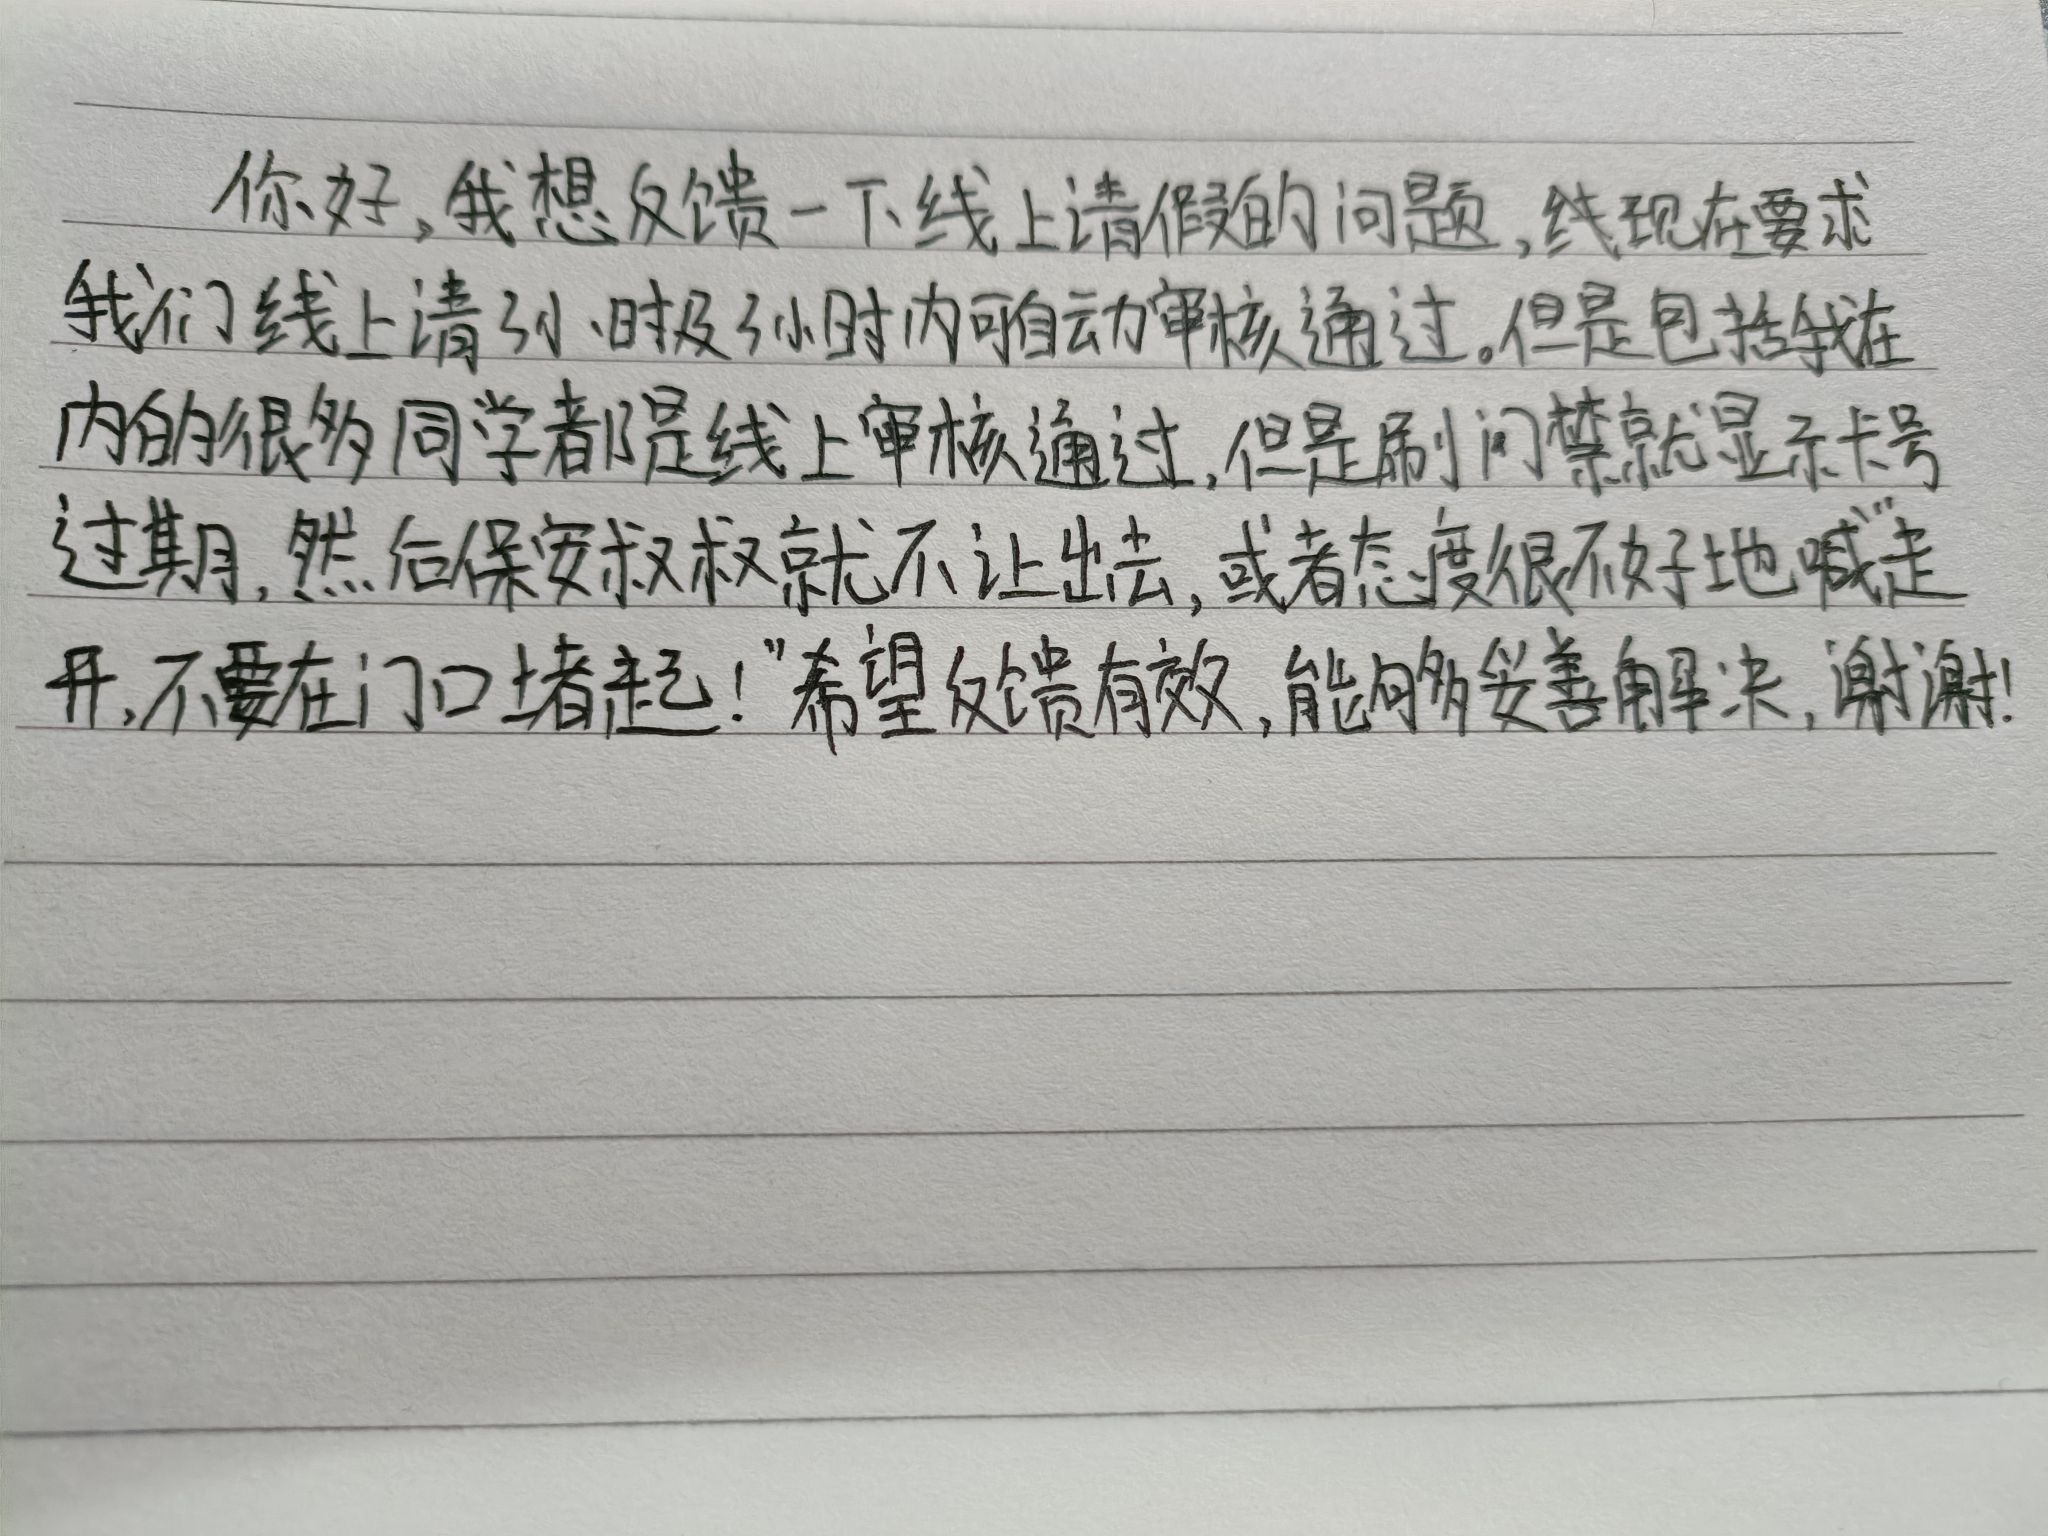 你好,我想反馈一下线上请假的问题,线现在要求
我们线上请3小时及3小时内可自动审核通过。但是包括我在
内的很多同学都是线上审核通过,但是刷门禁就显示卡号
过期,然后保安叔叔就不让出去,或者态度很不好地喊“走
开,不要在门口堵起!”希望反馈有效,能够妥善解决,谢谢!